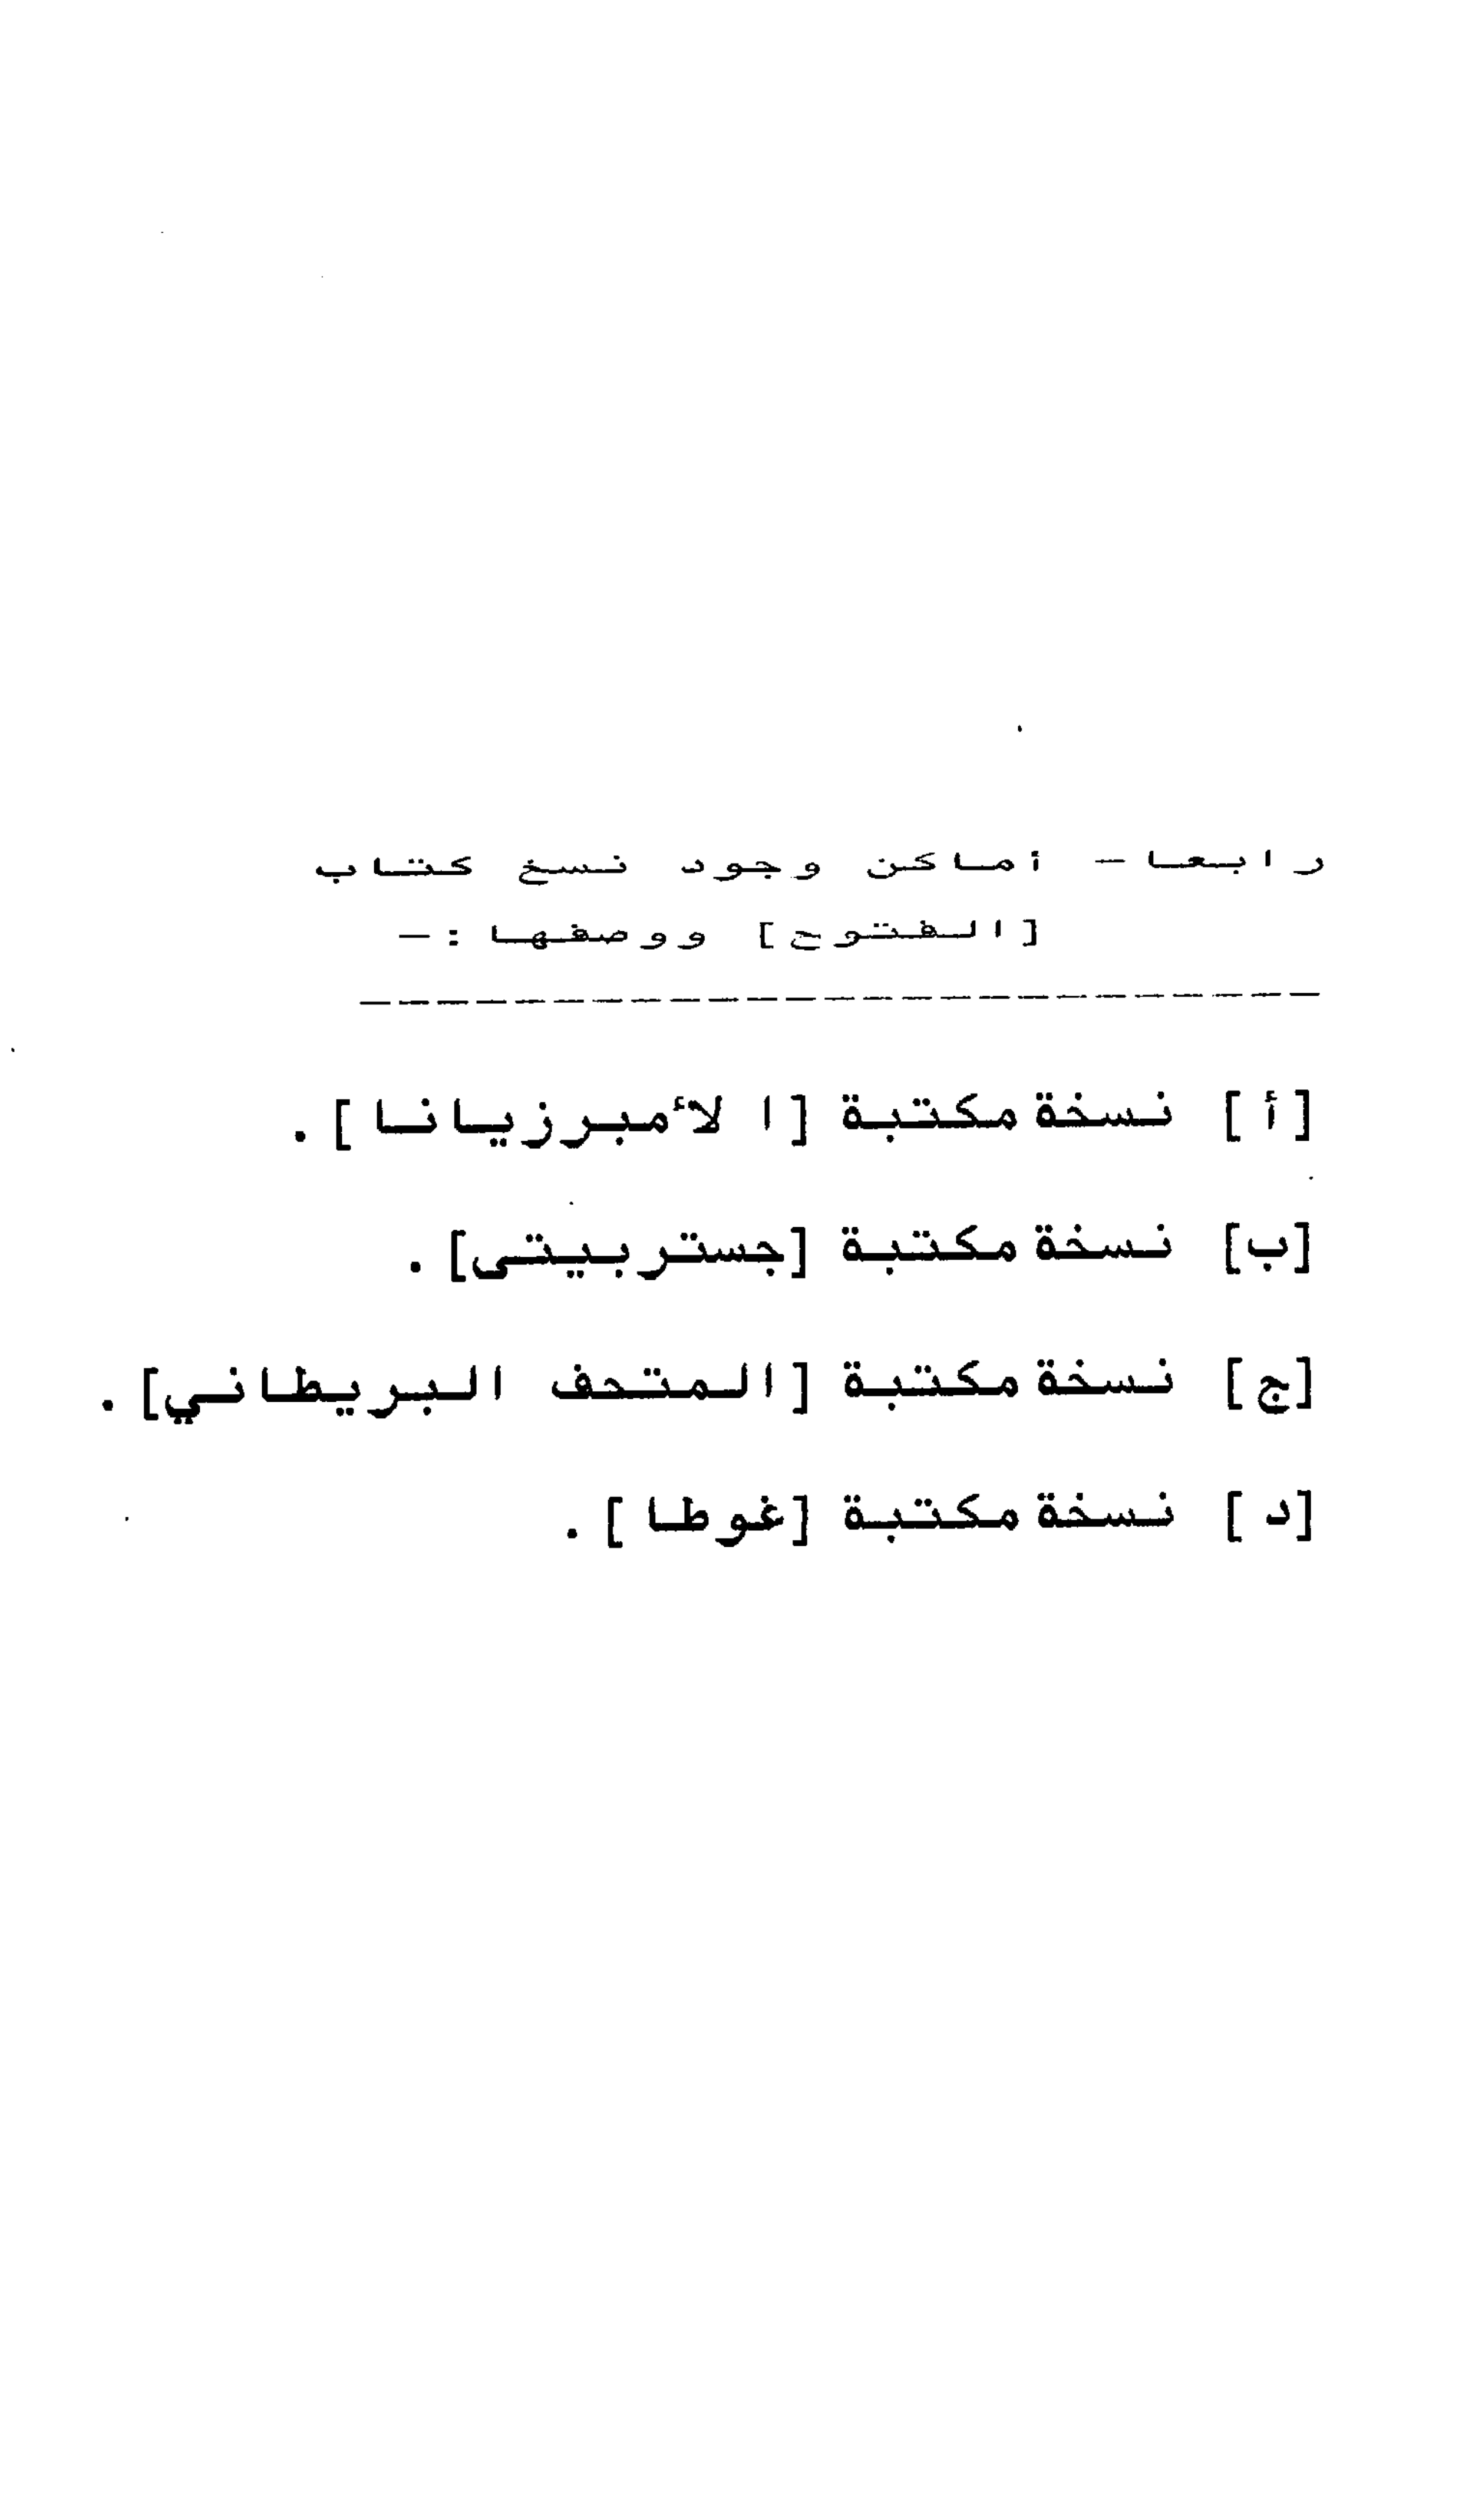 رابعا - أماكن وجود نسخ كتاب
[الفتوح] ووصفها :-
[أ] نسخة مكتبة [الأمبرزيانا].
[ب] نسخة مكتبة [جستربيتى].
[ج] نسخة مكتبة [المتحف البريطاني].
[د] نسخة مكتبة [غوطا].